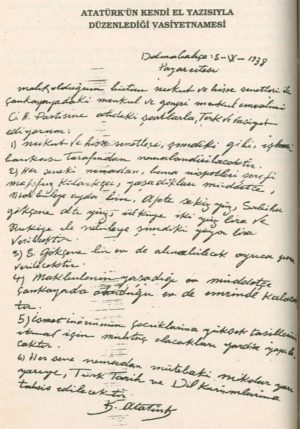 ATATÜRK'ÜN KENDİ EL YAZISIYLA
DÜZENLEDİĞİ VASİYETNAMESİ
Dolmabahçe: 5-IX-1938
Pazartesi
Malik olduğum bütün nukut ve hisse senetleri ile
Çankayadaki menkul ve gayri menkul emvalimi
C. H. Partisine atideki şartlarla, terk ve vasiyet
ediyorum:
1) Nukut ve hisse senetleri, şimdiki gibi, iş ban
kası tarafından nemalandırılacaktır.
2) Her seneki nemadan, bana nispetleri şerefi
mahfuz kaldıkça, yaşadıkları müddetçe,
Makbuleye ayda bin, Afete sekiz yüz, Sabiha
Gökçene altı yüz, Ülküye iki yüz lira ve
Rukiye ile Nebileye şimdiki yüzer lira
verilecektir.
3) S. Gökçene bir ev de alınabilecek ayrıca para
verilecektir.
4) Makbulenin yaşadığı müddetçe
Çankayada oturduğu ev de emrinde kalacak
tır.
5) İsmet İnönünün çocuklarına yüksek tahsillerini
ikmal için muhtaç olacakları yardım yapıla
caktır.
6) Her sene nemadan mütebaki miktar yarı
yarıya, Türk Tarih ve Dil Kurumlarına
tahsis edilecektir
K. Atatürk